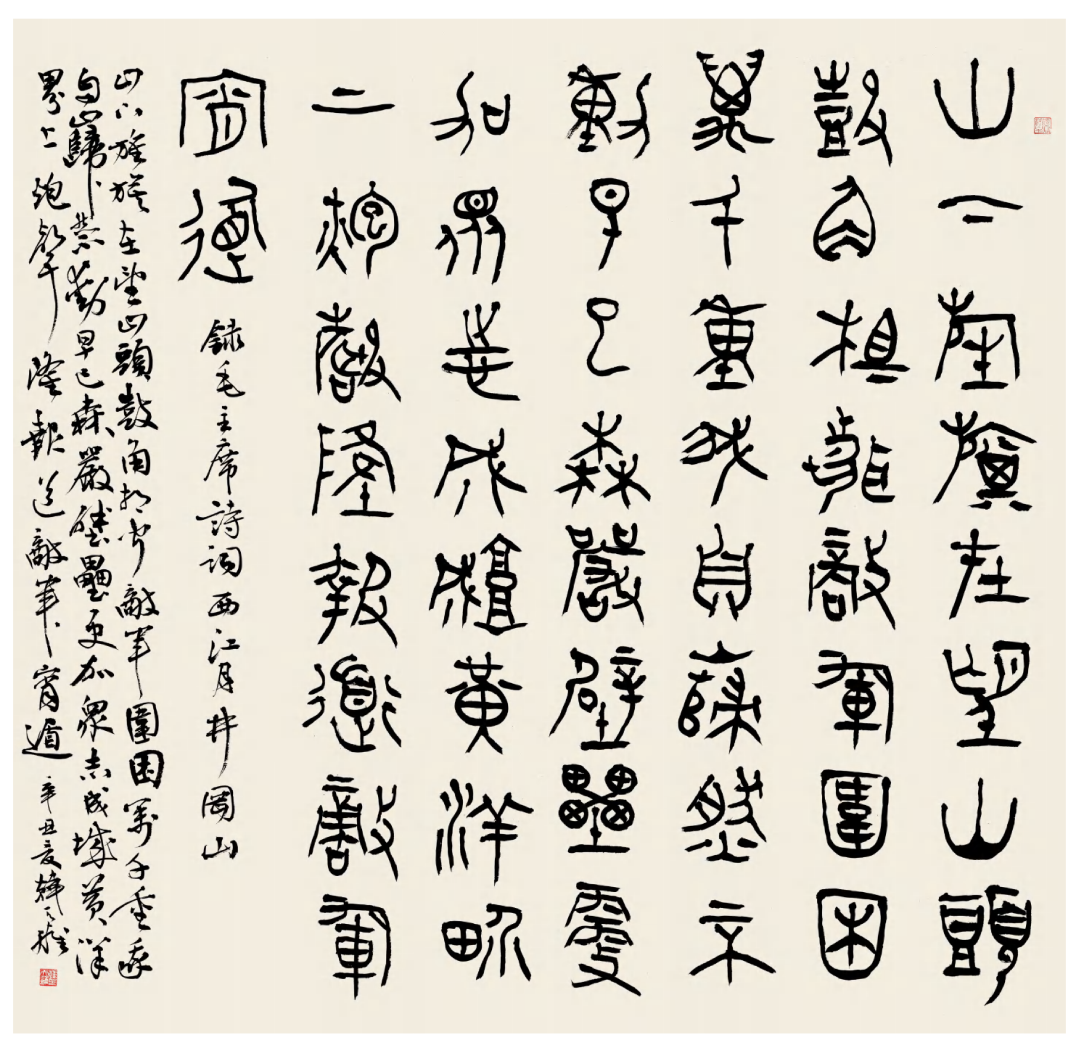 山下旌旗在望山頭
鼓角相聞敵軍圍困
萬千重我自巋然不
動早已森嚴壁壘更
加眾志成城黃洋界
上炮聲隆報道敵軍
宵遁
錄毛主席詩詞西江月井岡山
山下旌旗在望山頭鼓角相聞敵軍圍困萬千重我
自巋然不動早已森嚴壁壘更加眾志成城黃洋
界上炮聲隆報道敵軍宵遁 辛丑夏韓天雍